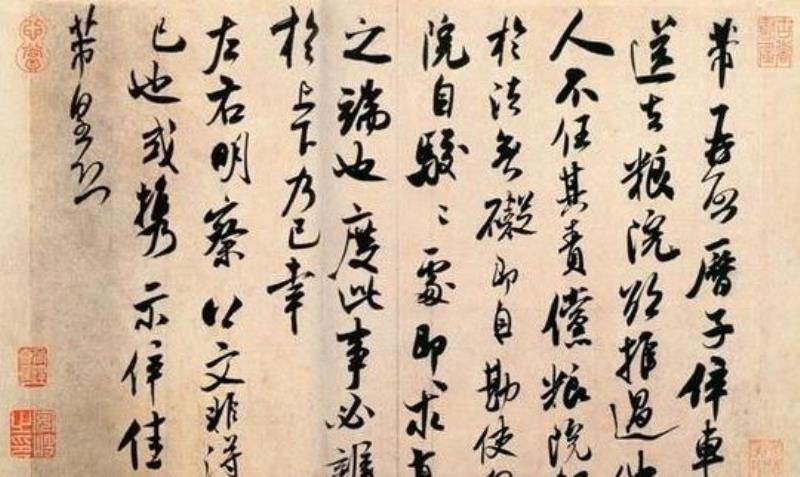 芾再啓曆子倅車
送去粮院欲推過
人不任其責儻粮院
於法無礙即自勘使
院自駁〻處即求
之端也度此事必
於上下乃已幸
左右明察此文非得
已也或攜示倅佳
芾皇恐